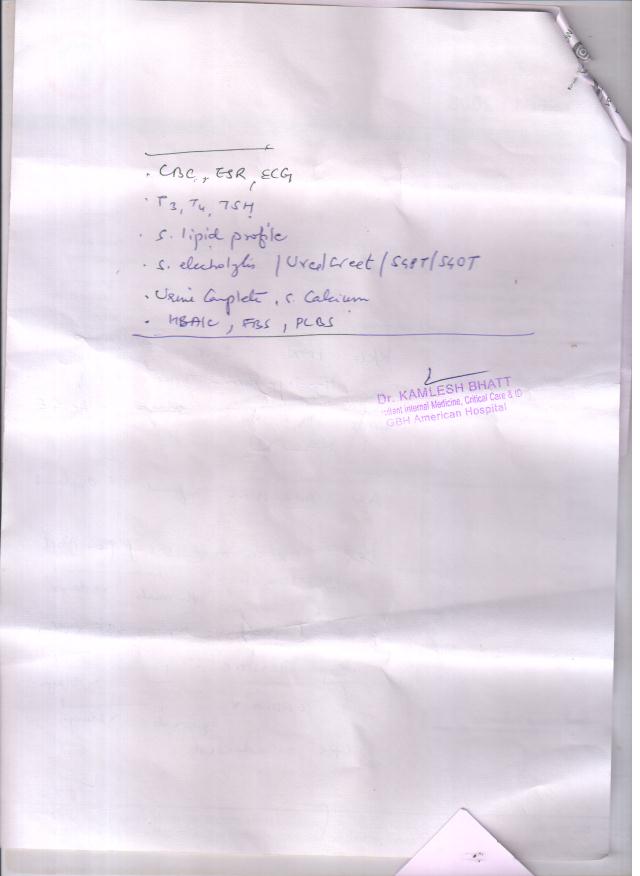 . CBC, ESR, ECG
. T3, T4, TSH
. S. lipid profile
. S. electrolytis / Urea/Creet / SGPT/SGOT
. Urine Complete, S. Calcium
. HBA1C, FBS, PLBS
Dr. KAMLESH BHATT
ultant Internal Medicine, Critical Care & ID
GBH American Hospital